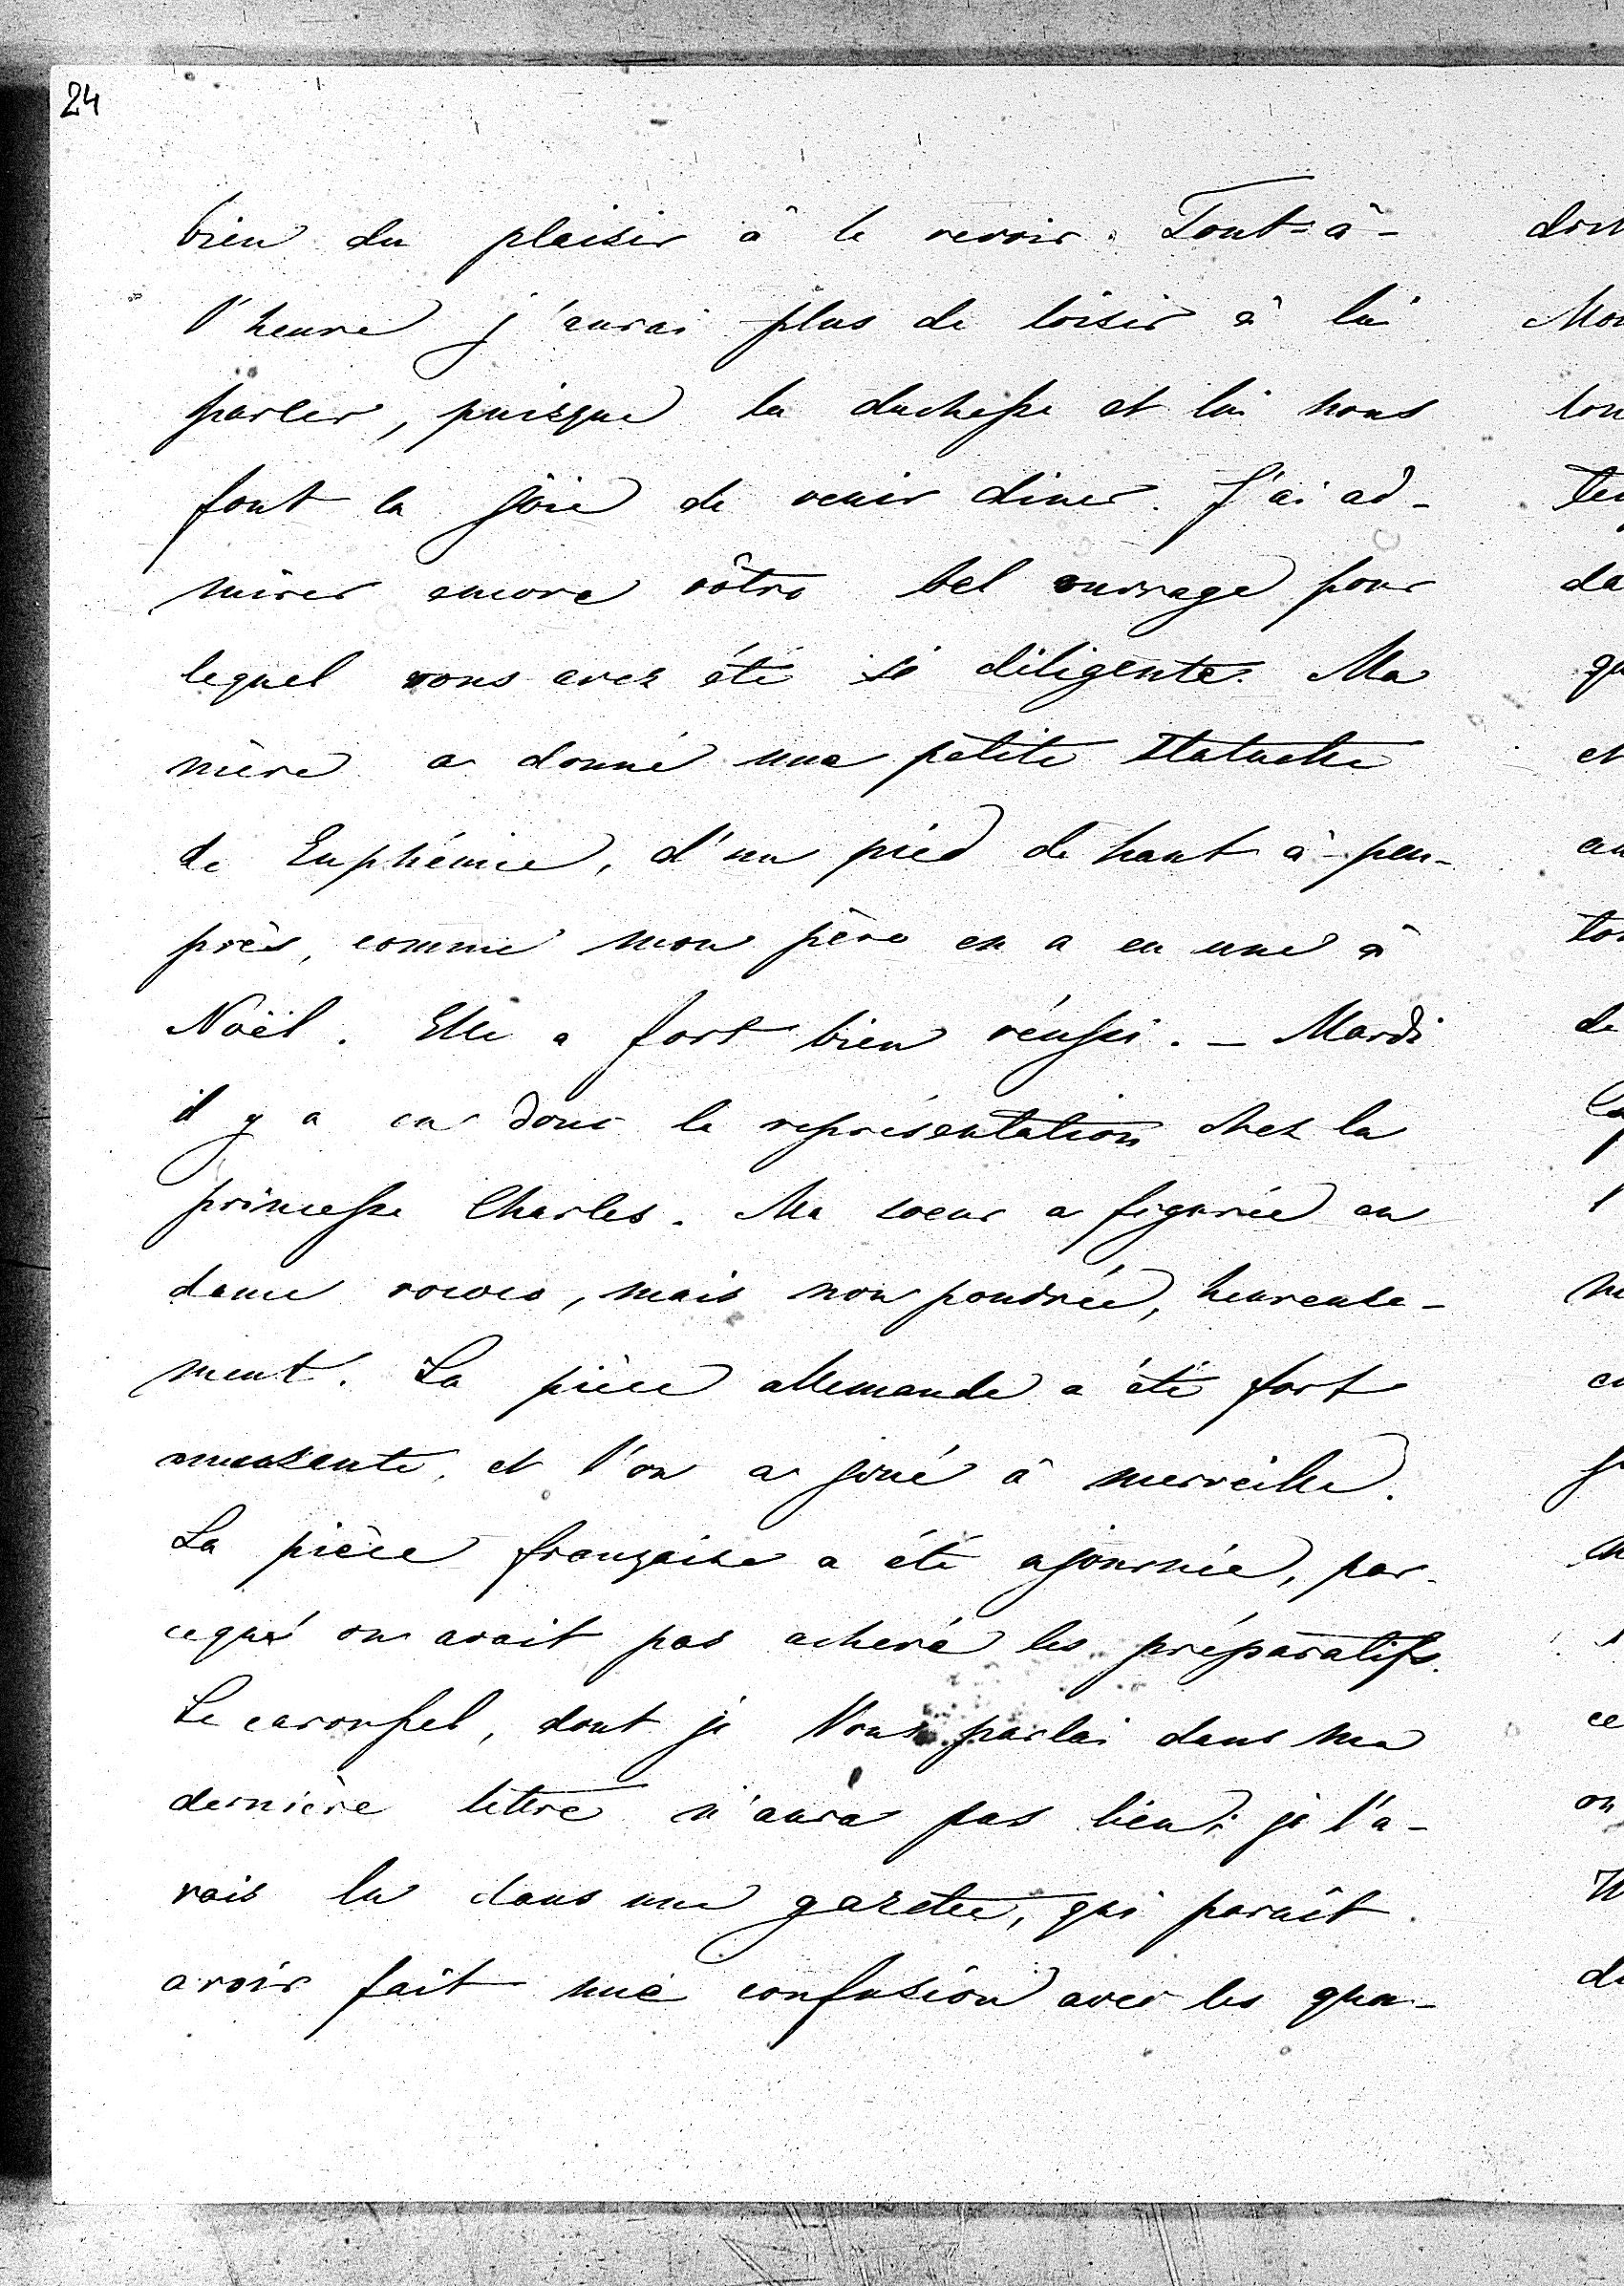 24
bien du plaisir à le revoir. Tout-à-
l'heure j'aurai plus de loisir à lui
parler, puisque la duchesse et lui nous
font la joie de venir diner. J'ai ad-
mirer encore vôtre bel ouvrage pour
lequel vous avez été si diligente. Ma
mère a donné une petite statuette
de Euphémie, d'un pied de haut à-peu-
près, comme mon père en a eu une à
Noël. Elle a fort bien réussi. — Mardi
il y a eu donc la représentation chez la
princesse Charles. Ma soeur a figurée en
dame rococo, mais non poudrée, heureuse-
ment. La pièce allemande a été fort
amusante, et l'on a joué à merveille.
La pièce française a été ajournée, par-
ceque on avait pas achevé les préparatifs.
Le caroussel, dont je Vous parlai dans ma
dernière lettre n'aura pas lieu; je l'a-
vais lu dans une gazette, qui parait
avoir fait une confusion avec les qua-